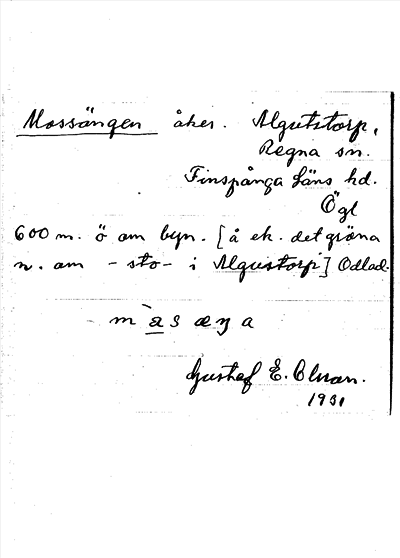 Mossängen åker. Algutstorp,
Regna sn.
Finspånga läns hd.
Ögl
600 m. ö om byn. [å ek. det gröna
n. om - sto - i Algustorp] Odlad.
m a s æ ŋ a
Gustaf E. Olsson.
1931